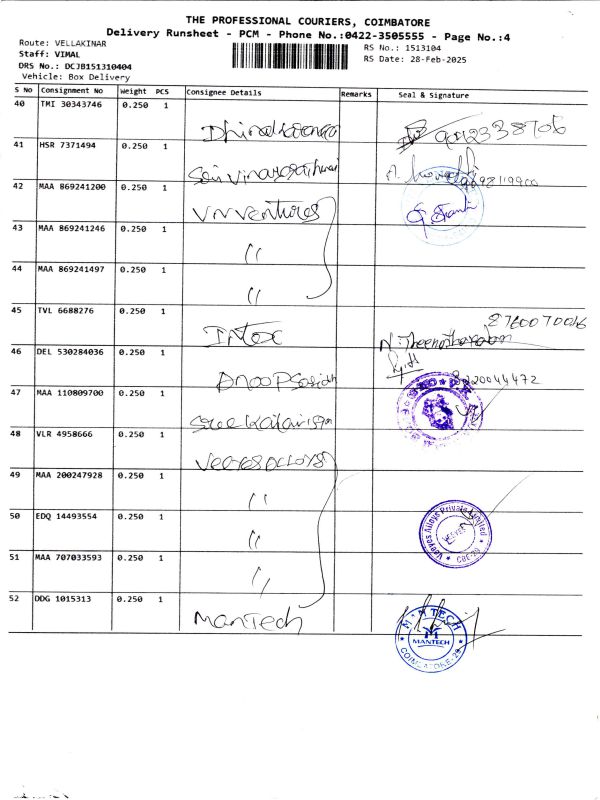 THE PROFESSIONAL COURIERS, COIMBATORE
Delivery Runsheet - PCM - Phone No.:0422-3505555 - Page No.:4
Route: VELLAKINAR
RS No.: 1513104
Staff: VIMAL
RS Date: 28-Feb-2025
DRS No.: DCJB151310404
Vehicle: Box Delivery
S No Consignment No Weight PCS Consignee Details Remarks Seal & Signature
40 TMI 30343746 0.250 1
41 HSR 7371494 0.250 1
42 MAA 869241200 0.250 1 VN Ventures
43 MAA 869241246 0.250 1 "
44 MAA 869241497 0.250 1 "
8760070046
45 TVL 6688276 0.250 1 Intex
46 DEL 530284036 0.250 1
47 MAA 110809700 0.250 1
48 VLR 4958666 0.250 1 Veeyes alloys
49 MAA 200247928 0.250 1 "
50 EDQ 14493554 0.250 1 "
Veeyes Alloys Private Limited
VEEYES
CBE-29
51 MAA 707033593 0.250 1 "
52 DDG 1015313 0.250 1 ManTech
MANTECH
COIMBATORE-29